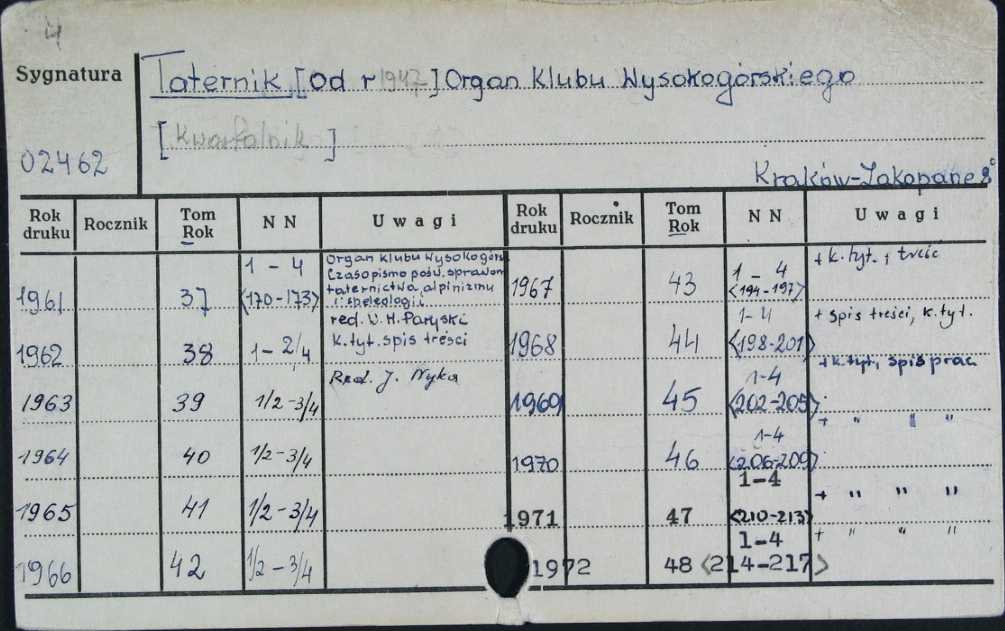 4
Sygnatura
Taternik [Od r 1947] Organ Klubu Wysokogórskiego
[Kwartalnik]
02462
Kraków-Zakopane 8°
Rok druku Rocznik Tom Rok NN Uwagi Rok druku Rocznik Tom Rok NN Uwagi
1961 37 1-4 <170-173> Organ Klubu Wysokogórs. Czasopismo pośw. sprawom taternictwa, alpinizmu i speleologii red. W. H. Paryski 1967 43 1-4 <194-197> + k. tyt. i treść
1962 38 1-2/4 k. tyt. spis treści 1968 44 1-4 <198-201> + spis treści, k. tyt.
1963 39 1/2-3/4 Red. J. Nyka 1969 45 1-4 <202-205> + k. tyt, spis prac
1964 40 1/2-3/4 1970 46 1-4 <206-209> + " " "
1965 41 1/2-3/4 1971 47 1-4 <210-213> + " " "
1966 42 1/2-3/4 1972 48 1-4 <214-217> + " " "